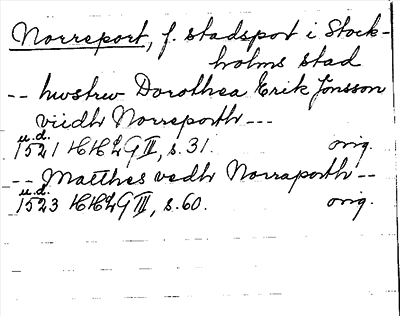 Norreport, f. stadsport i Stock-
holms stad
-- hwstrw Dorothea Erik Jonsson
viidh Norreporth ---
u.d.
1521 HHLG II, s. 31. orig.
-- Matthes vedh Norraporth --
u.d.
1523 HHLG III, s. 60. orig.